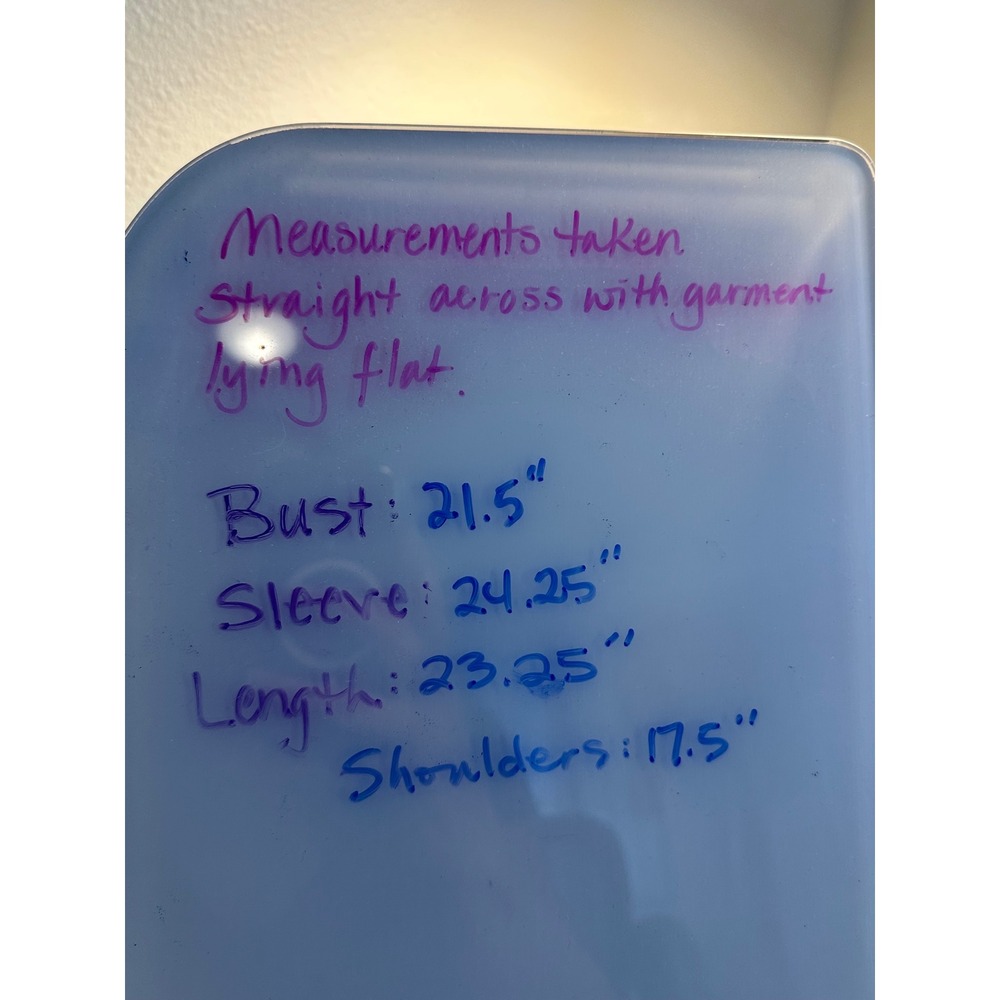 Measurements taken
straight across with garment
lying flat.
Bust: 21.5"
Sleeve: 24.25"
Length: 23.25"
Shoulders: 17.5"